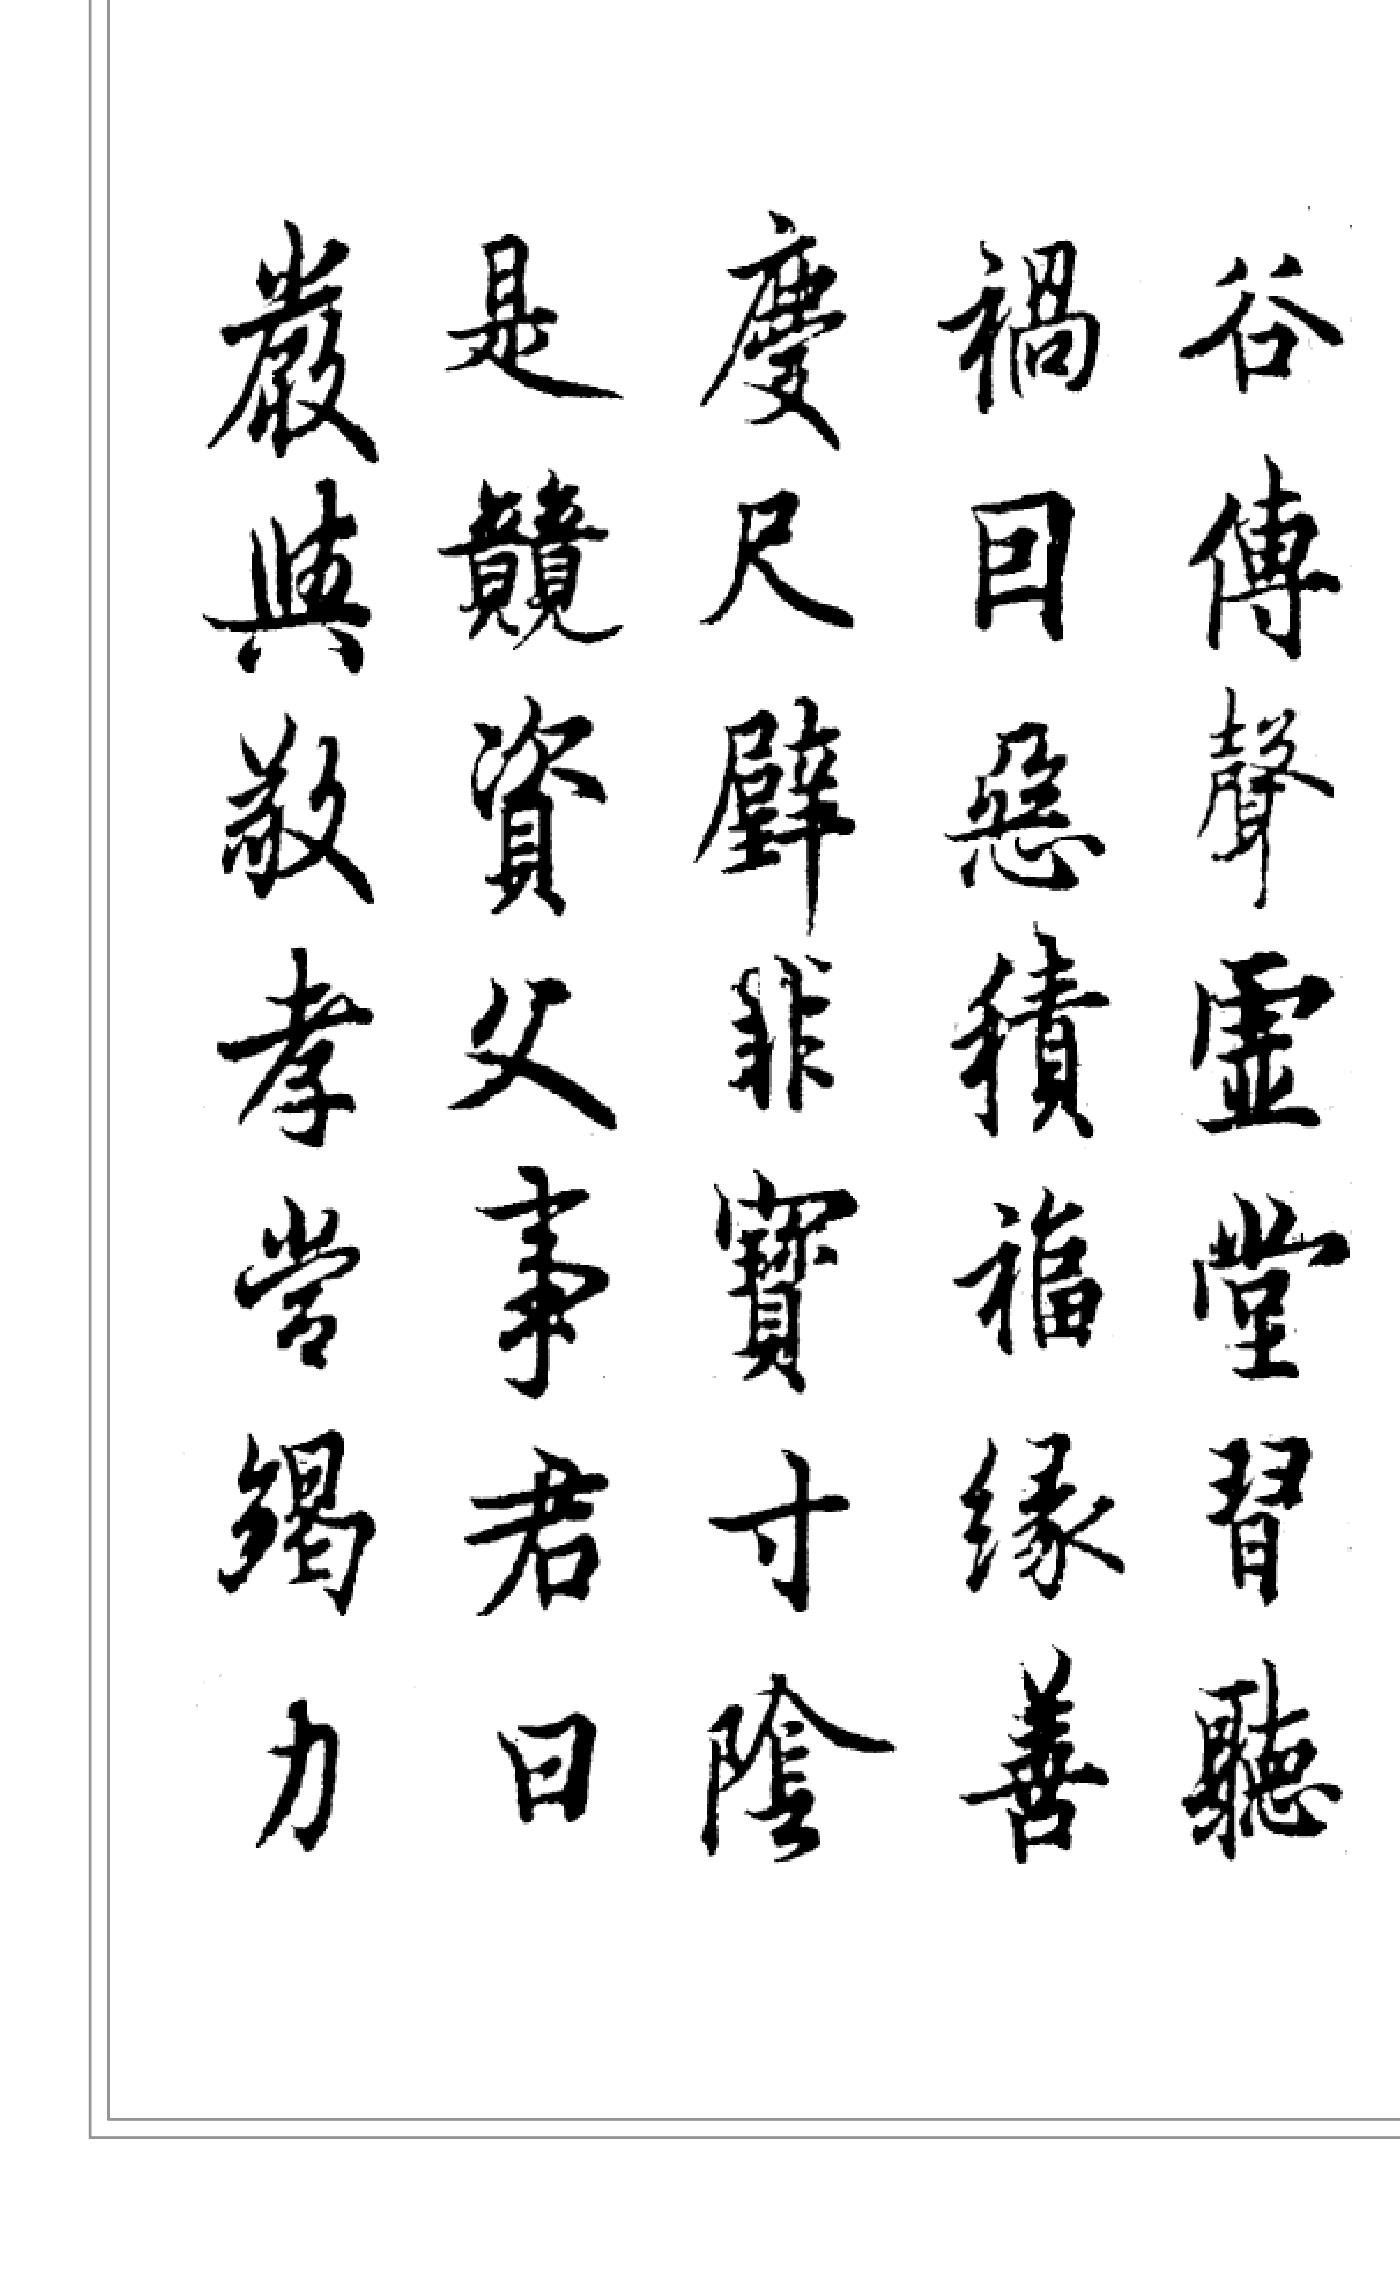 谷傳聲虛堂習聽
禍因惡積福緣善
慶尺璧非寶寸陰
是競資父事君曰
嚴與敬孝當竭力